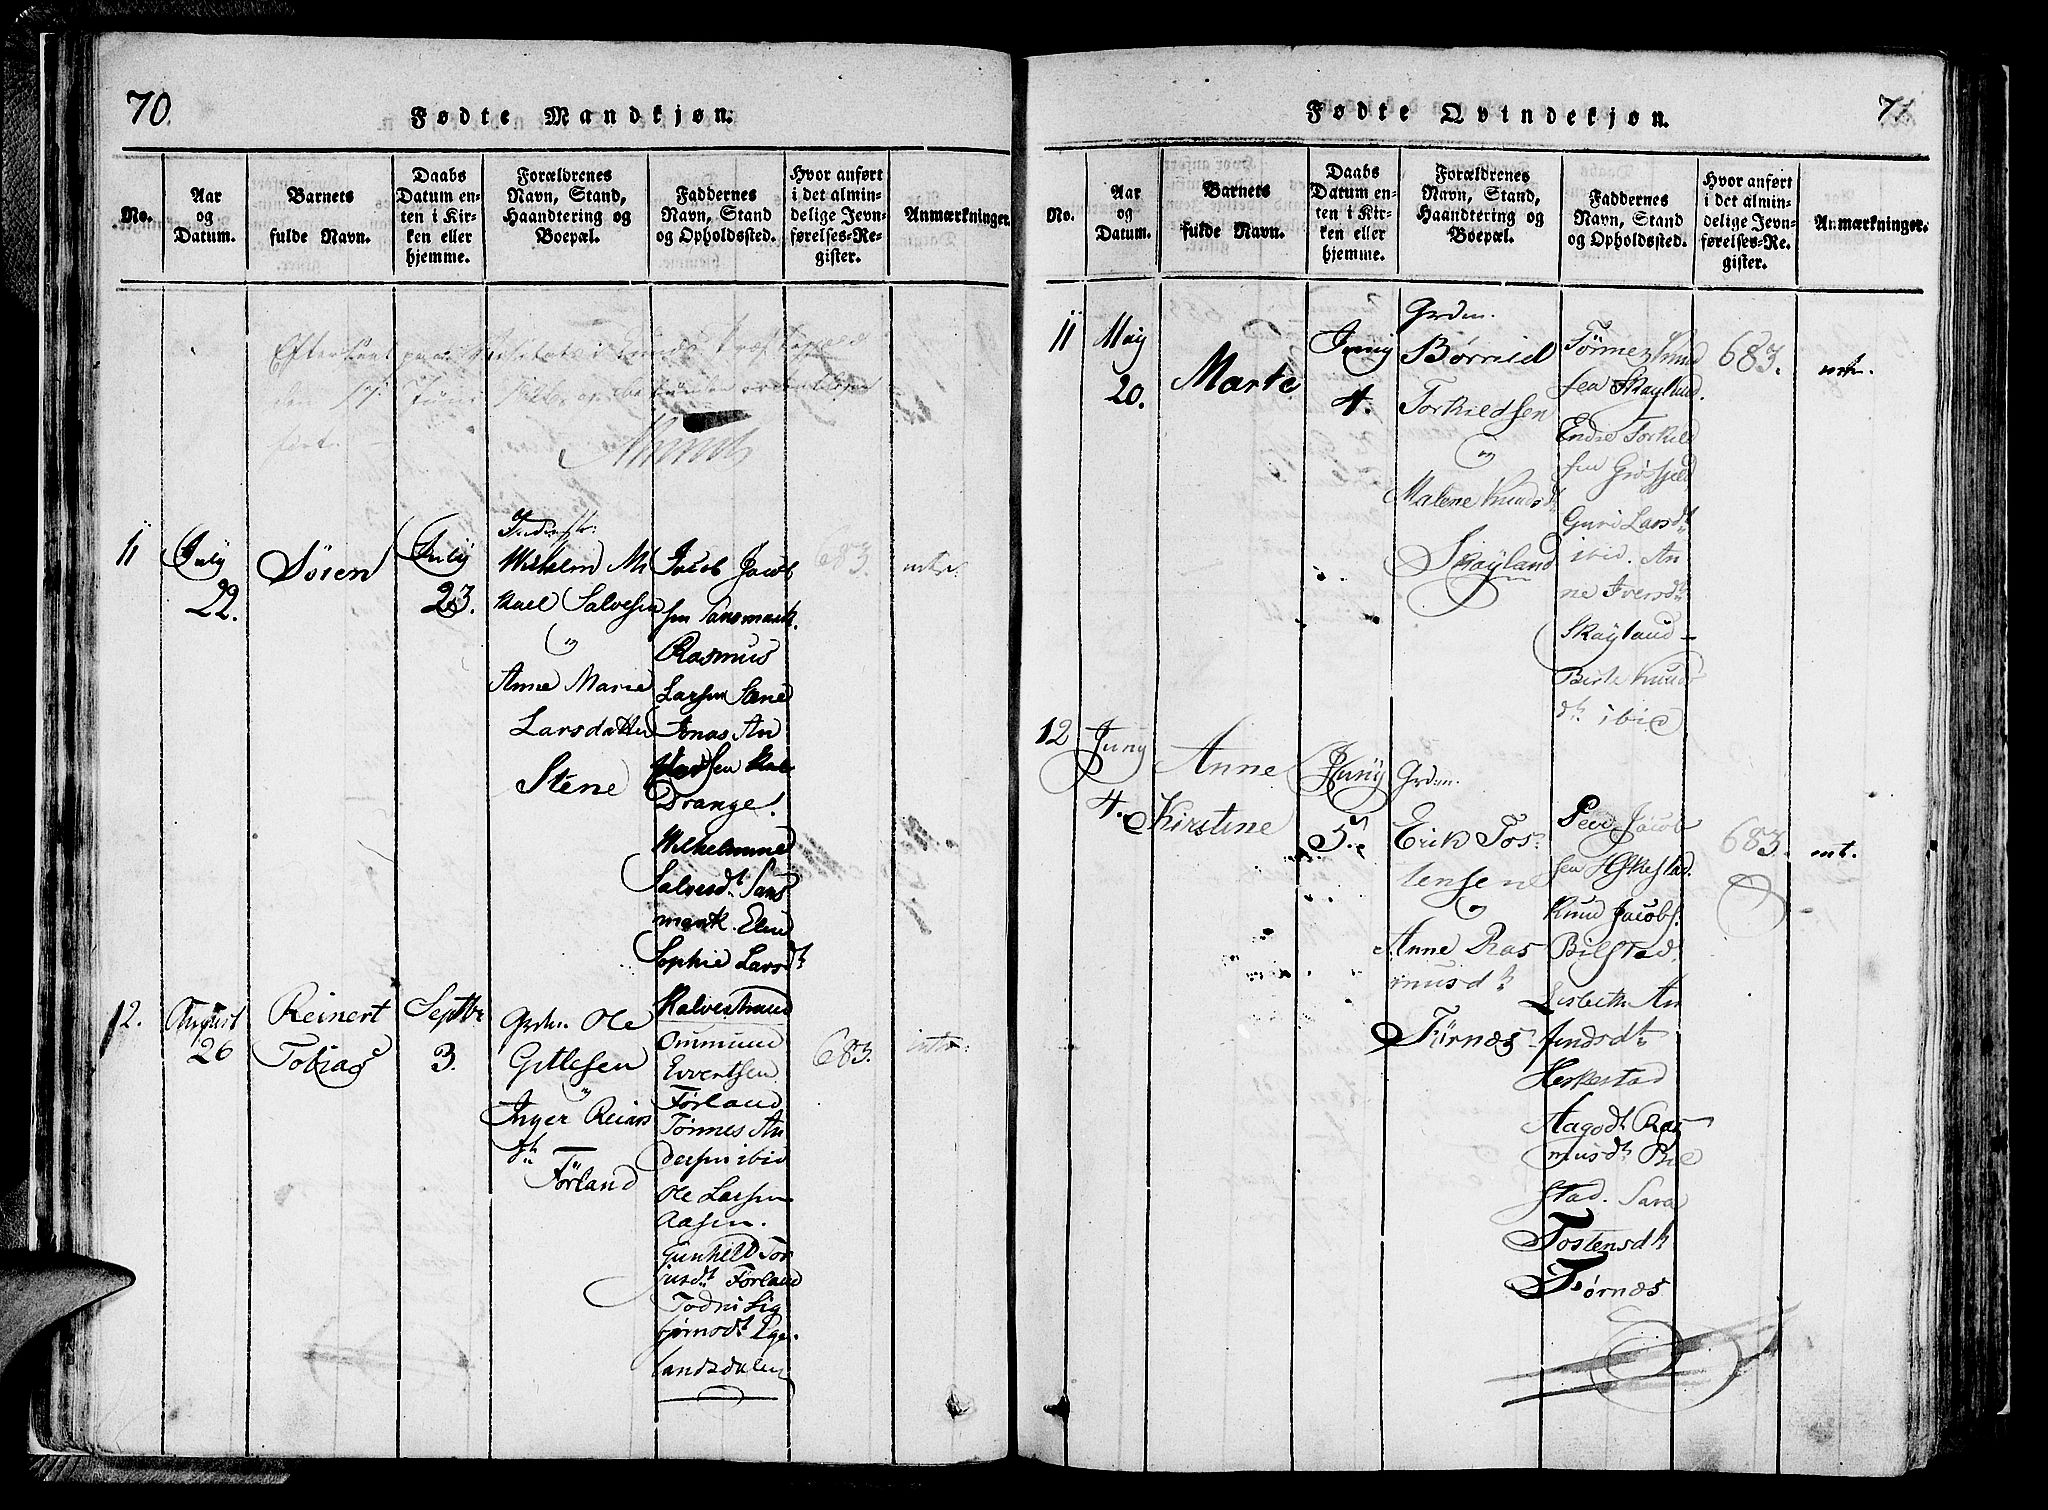 70.
Fødte Mandkjøn.
No.
Aar
og
Datum.
Barnets
fulde Navn.
Daabs
Datum en-
ten i Kir-
ken eller
hjemme.
Forældrenes
Navn, Stand,
Haandtering og
Boepæl.
Faddernes
Navn, Stand
og Opholdssted.
Hvor anført
i det almin-
delige Jevn-
førelses-Re-
gister.
Anmærkninger.
11
July
22.
Søren
July
23.
Wilhelm Mi
kael Salvesen
og
Anne Marie
Larsdatter
Stene
Jacob Jacob
sen Sansmark.
Rasmus
Larsen Stene
Jonas An
Drange!
Wilhelmine
Salvesdt. Sans
mark. Elen
Sophie Larsdt
Kalvestrand
683.
12.
August
26
Reinert
Tobias
Septbr
3.
Grdm. Ole
Gitlesen
"
Inger Reiers
dt.
Førland
Ommund
Evertsen
Førland
Tønnes An
dersen ibid
Ole Larsen
Aasen.
Gunhild Tor
jusdt. Førland
Todni Sig
bjørnsdt. Ege
landsdalen
683.
71.
Fødte Qvindekjøn.
No.
Aar
og
Datum.
Barnets
fulde Navn.
Daabs
Datum en-
ten i Kir-
ken eller
hjemme.
Forældrenes
Navn, Stand,
Haandtering og
Boepæl.
Faddernes
Navn, Stand
og Opholdssted.
Hvor anført
i det almin-
delige Jevn-
førelses-Re-
gister.
Anmærkninger.
11
May
20.
Marte
Juny
4.
Grdm.
Børrild
Torkildsen
og
Malene Knudsdt.
Skayland
Tønnes Knud
sen Skayland.
Endre Torkild
sen Grøsfjeld
Guri Larsdt.
ibid. An
ne Iversdt.
Skayland
Birte Knuds
dt. ibid
683.
12
Juny
4.
Anne
Kirstine
Juny
5.
Grdm.
Erik Tos
tensen
og
Anne Ras
musdt.
Tørnes
Peder Jacob
sen Heskestad.
Knud Jacobs.
Bilstad.
Lisbeth An
findsdt.
Heskestad
Aagodt Ras
musdt. Bil
stad. Sara
Tostensdt
Tørnes
683.